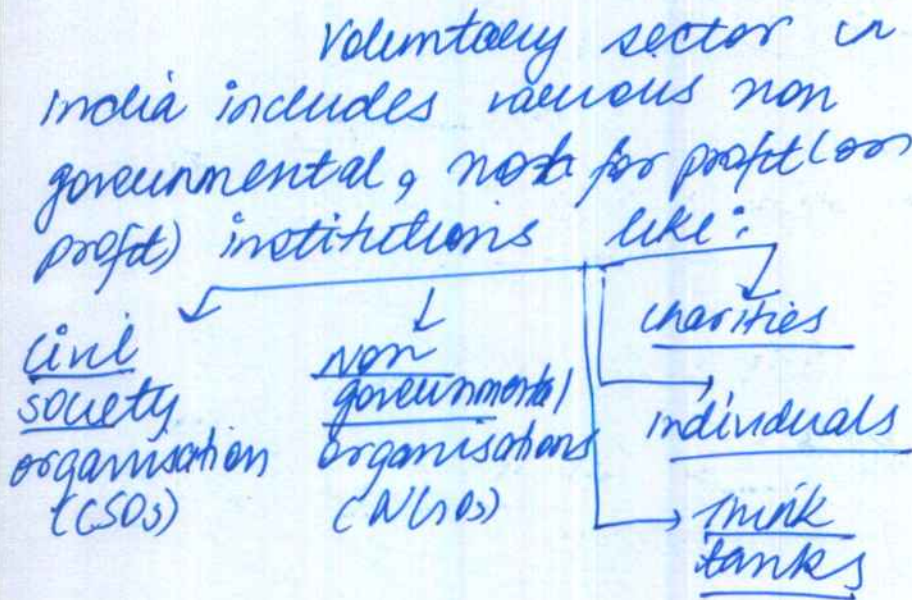 Voluntary sector in
India includes various non
governmental, not for profit (or
profit) institutions like:
Civil
society
organisation
(CSOs)
Non
governmental
organisations
(NGOs)
charities
individuals
Think
tanks